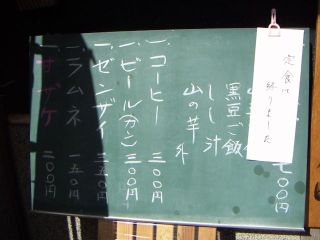 定食は
終りました
七〇〇円
黒豆ご飯
しし汁
山の芋 外
一、コーヒー 三〇〇円
一、ビール(カン) 三〇〇円
一、ゼンザイ 三五〇円
一、ラムネ 一五〇円
一、甘ザケ 二〇〇円